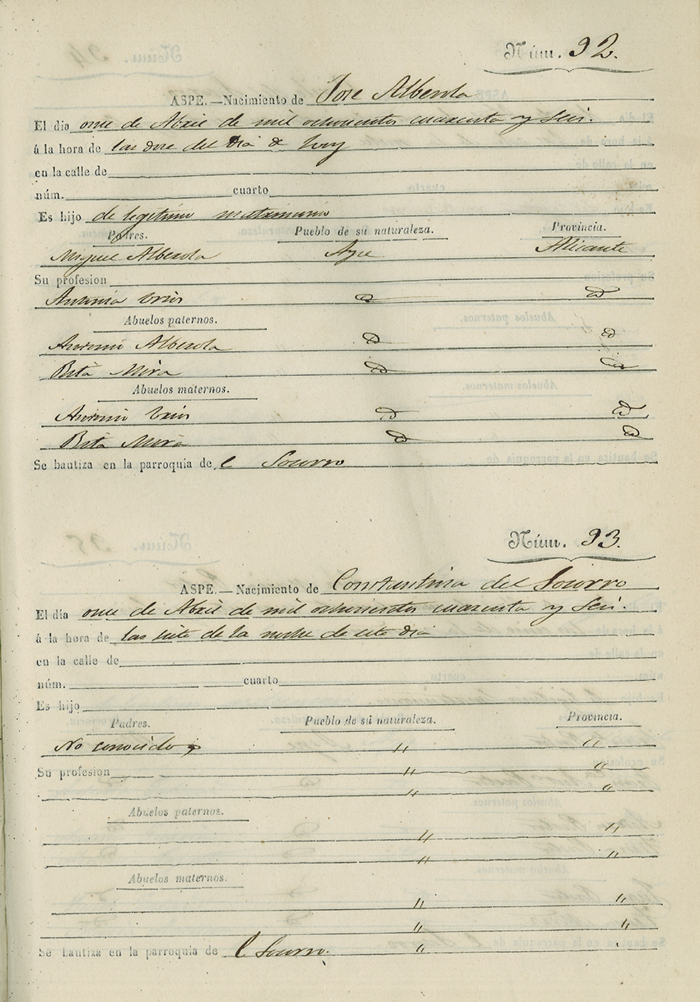 Núm. 92.
ASPE.—Nacimiento de José Alberola
El dia once de Abril de mil ochocientos cuarenta y Seis.
á la hora de las dose del Dia de hoy
en la calle de
núm. cuarto
Es hijo de legitimo matrimonio
Padres. Pueblo de su naturaleza. Provincia.
Miguel Alberola Aspe Alicante
Su profesion
Antonia id id
Abuelos paternos.
Antonio Alberola id id
Rita Mira id id
Abuelos maternos.
Antonio id id
Rita Mira id id
Se bautiza en la parroquia de l Socorro
Núm. 93.
ASPE.—Nacimiento de Constantina del Socorro
El dia once de Abril de mil ochocientos cuarenta y Seis.
á la hora de las siete de la noche de este dia
en la calle de
núm. cuarto
Es hijo
Padres. Pueblo de su naturaleza. Provincia.
No conocidos " "
Su profesion " "
" "
Abuelos paternos.
" "
" "
Abuelos maternos.
" "
" "
Se bautiza en la parroquia de l Socorro. "